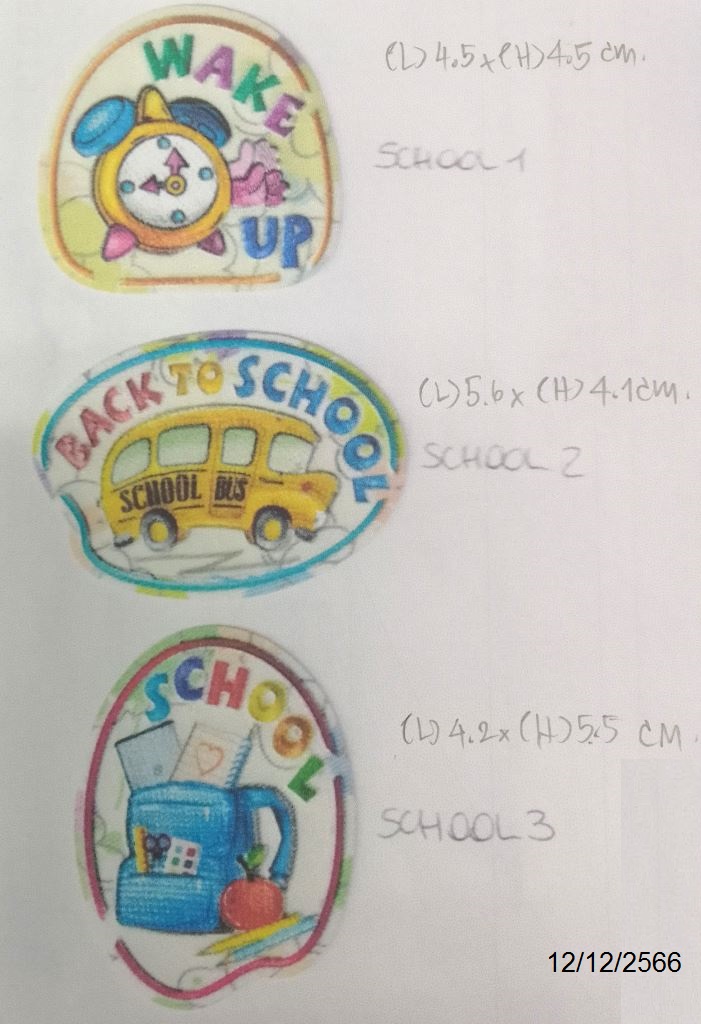 WAKE
UP
(L) 4.5 x (H) 4.5 cm.
SCHOOL 1
BACK TO SCHOOL
SCHOOL BUS
(L) 5.6 x (H) 4.1 cm.
SCHOOL 2
SCHOOL
(L) 4.2 x (H) 5.5 cm.
SCHOOL 3
12/12/2566